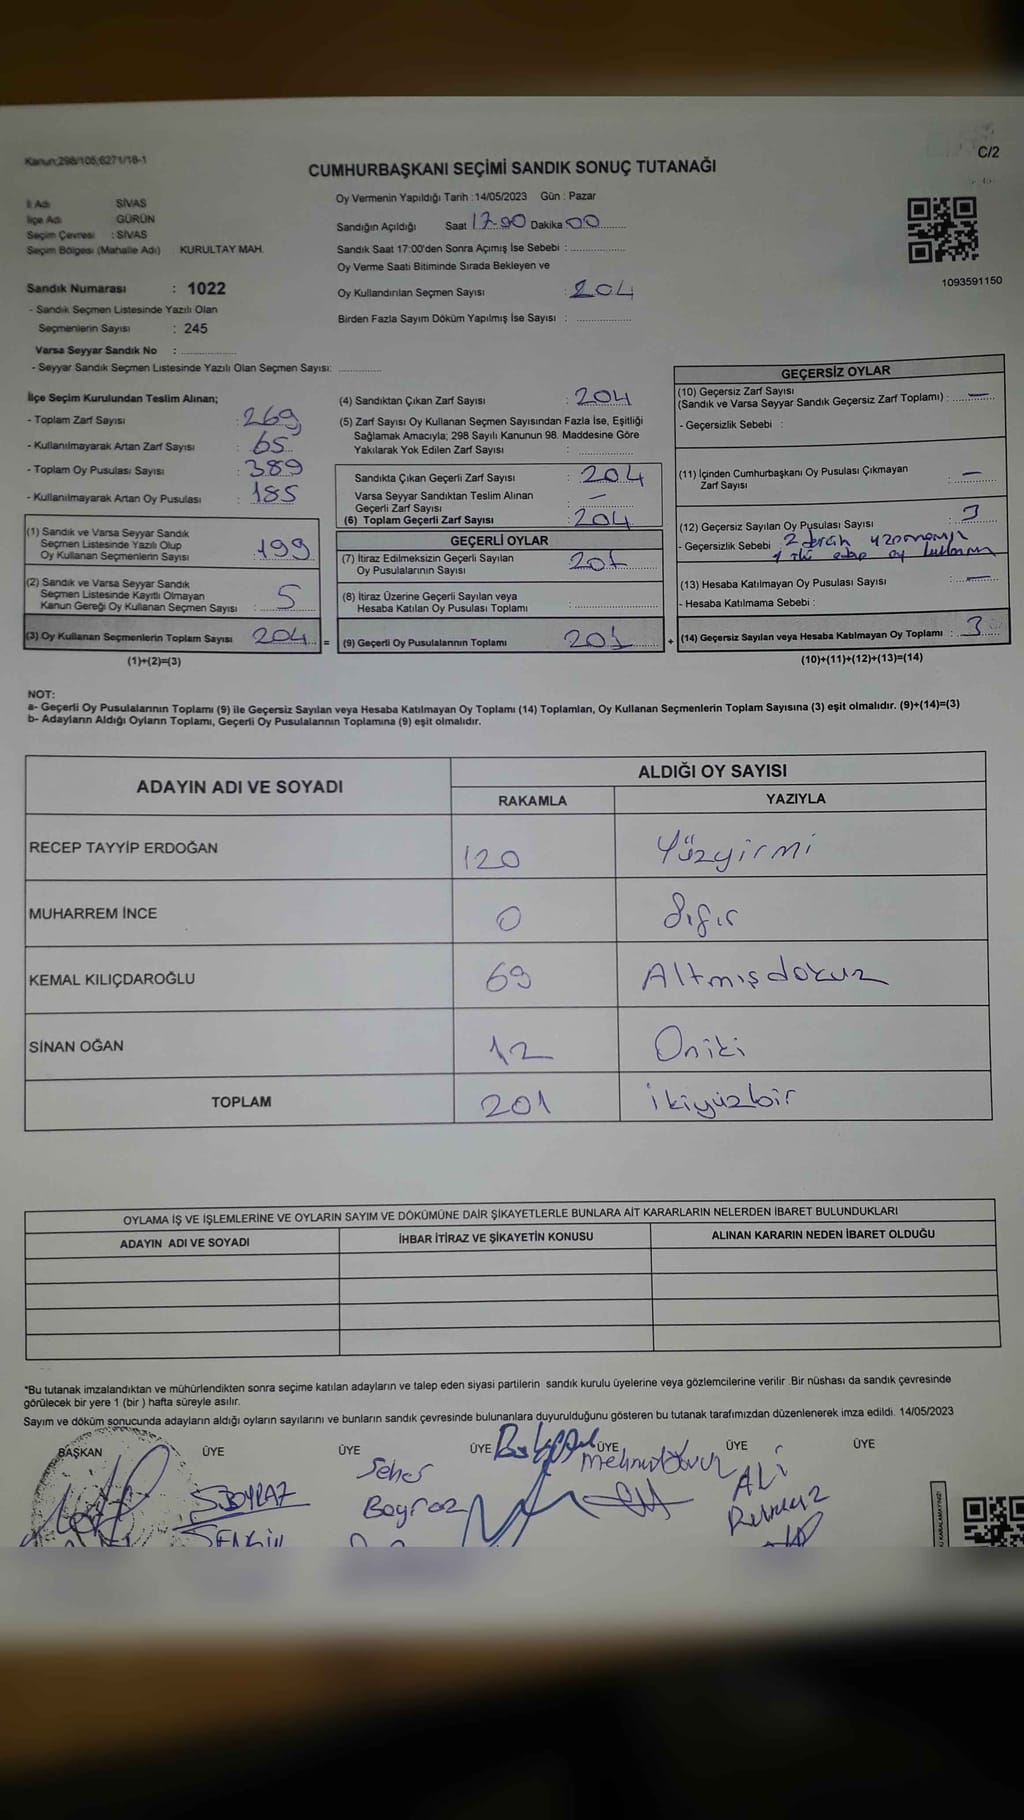 Kanun;298/105;6271/18-1
C/2
CUMHURBAŞKANI SEÇİMİ SANDIK SONUÇ TUTANAĞI
İl Adı SİVAS
İlçe Adı GÜRÜN
Seçim Çevresi : SİVAS
Seçim Bölgesi (Mahalle Adı) KURULTAY MAH.
Sandık Numarası : 1022
- Sandık Seçmen Listesinde Yazılı Olan
Seçmenlerin Sayısı : 245
Varsa Seyyar Sandık No : ...............
- Seyyar Sandık Seçmen Listesinde Yazılı Olan Seçmen Sayısı: ............
Oy Vermenin Yapıldığı Tarih : 14/05/2023 Gün : Pazar
Sandığın Açıldığı Saat 17.00 Dakika 00
Sandık Saat 17:00'den Sonra Açımış İse Sebebi : ..............
Oy Verme Saati Bitiminde Sırada Bekleyen ve
Oy Kullandırılan Seçmen Sayısı : 204
Birden Fazla Sayım Döküm Yapılmış İse Sayısı : ..............
1093591150
İlçe Seçim Kurulundan Teslim Alınan;
- Toplam Zarf Sayısı : 269
- Kullanılmayarak Artan Zarf Sayısı : 65
- Toplam Oy Pusulası Sayısı : 389
- Kullanılmayarak Artan Oy Pusulası : 185
(1) Sandık ve Varsa Seyyar Sandık
Seçmen Listesinde Yazılı Olup
Oy Kullanan Seçmenlerin Sayısı : 199
(2) Sandık ve Varsa Seyyar Sandık
Seçmen Listesinde Kayıtlı Olmayan
Kanun Gereği Oy Kullanan Seçmen Sayısı : 5
(3) Oy Kullanan Seçmenlerin Toplam Sayısı 204 =
(1)+(2)=(3)
(4) Sandıktan Çıkan Zarf Sayısı : 204
(5) Zarf Sayısı Oy Kullanan Seçmen Sayısından Fazla İse, Eşitliği
Sağlamak Amacıyla; 298 Sayılı Kanunun 98. Maddesine Göre
Yakılarak Yok Edilen Zarf Sayısı : ..............
Sandıkta Çıkan Geçerli Zarf Sayısı : 204
Varsa Seyyar Sandıktan Teslim Alınan
Geçerli Zarf Sayısı : —
(6) Toplam Geçerli Zarf Sayısı : 204
GEÇERLİ OYLAR
(7) İtiraz Edilmeksizin Geçerli Sayılan
Oy Pusulalarının Sayısı : 201
(8) İtiraz Üzerine Geçerli Sayılan veya
Hesaba Katılan Oy Pusulası Toplamı : ..............
(9) Geçerli Oy Pusulalarının Toplamı 201 +
GEÇERSİZ OYLAR
(10) Geçersiz Zarf Sayısı
(Sandık ve Varsa Seyyar Sandık Geçersiz Zarf Toplamı) : —
- Geçersizlik Sebebi :
(11) İçinden Cumhurbaşkanı Oy Pusulası Çıkmayan
Zarf Sayısı : —
(12) Geçersiz Sayılan Oy Pusulası Sayısı : 3
- Geçersizlik Sebebi : 2
(13) Hesaba Katılmayan Oy Pusulası Sayısı : —
- Hesaba Katılmama Sebebi :
(14) Geçersiz Sayılan veya Hesaba Katılmayan Oy Toplamı : 3
(10)+(11)+(12)+(13)=(14)
NOT:
a- Geçerli Oy Pusulalarının Toplamı (9) ile Geçersiz Sayılan veya Hesaba Katılmayan Oy Toplamı (14) Toplamları, Oy Kullanan Seçmenlerin Toplam Sayısına (3) eşit olmalıdır. (9)+(14)=(3)
b- Adayların Aldığı Oyların Toplamı, Geçerli Oy Pusulalarının Toplamına (9) eşit olmalıdır.
ADAYIN ADI VE SOYADI ALDIĞI OY SAYISI
RAKAMLA YAZIYLA
RECEP TAYYİP ERDOĞAN 120 Yüzyirmi
MUHARREM İNCE 0 Sıfır
KEMAL KILIÇDAROĞLU 69 Altmışdokuz
SİNAN OĞAN 12 Oniki
TOPLAM 201 ikiyüzbir
OYLAMA İŞ VE İŞLEMLERİNE VE OYLARIN SAYIM VE DÖKÜMÜNE DAİR ŞİKAYETLERLE BUNLARA AİT KARARLARIN NELERDEN İBARET BULUNDUKLARI
ADAYIN ADI VE SOYADI İHBAR İTİRAZ VE ŞİKAYETİN KONUSU ALINAN KARARIN NEDEN İBARET OLDUĞU
*Bu tutanak imzalandıktan ve mühürlendikten sonra seçime katılan adayların ve talep eden siyasi partilerin sandık kurulu üyelerine veya gözlemcilerine verilir .Bir nüshası da sandık çevresinde
görülecek bir yere 1 (bir ) hafta süreyle asılır.
Sayım ve döküm sonucunda adayların aldığı oyların sayılarını ve bunların sandık çevresinde bulunanlara duyurulduğunu gösteren bu tutanak tarafımızdan düzenlenerek imza edildi. 14/05/2023
BAŞKAN ÜYE ÜYE ÜYE ÜYE ÜYE ÜYE
S.BOYRAZ
Seher
Boyraz
ALİ